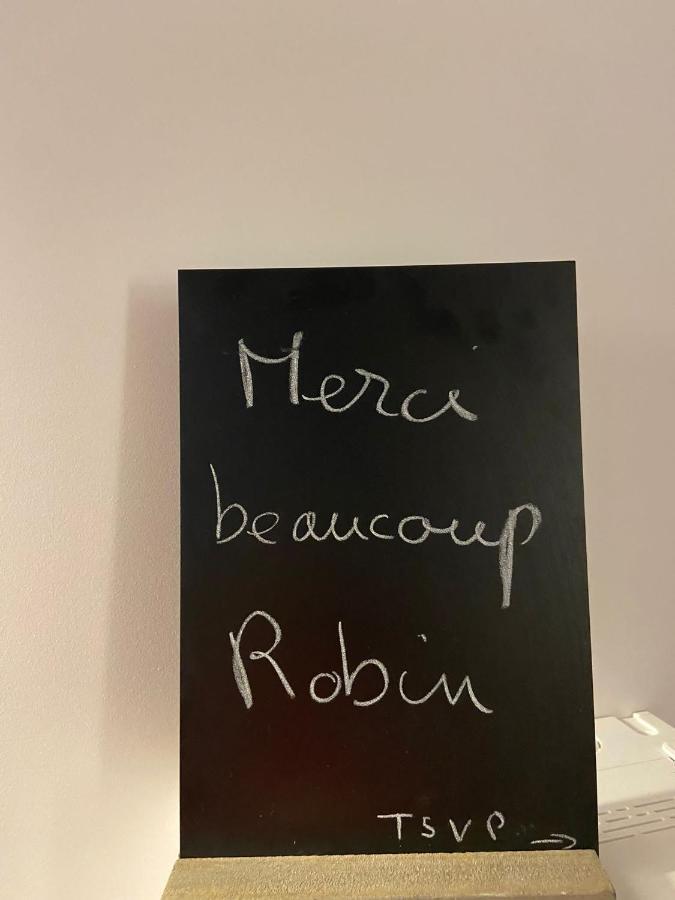 Merci
beaucoup
Robin
TSVP →